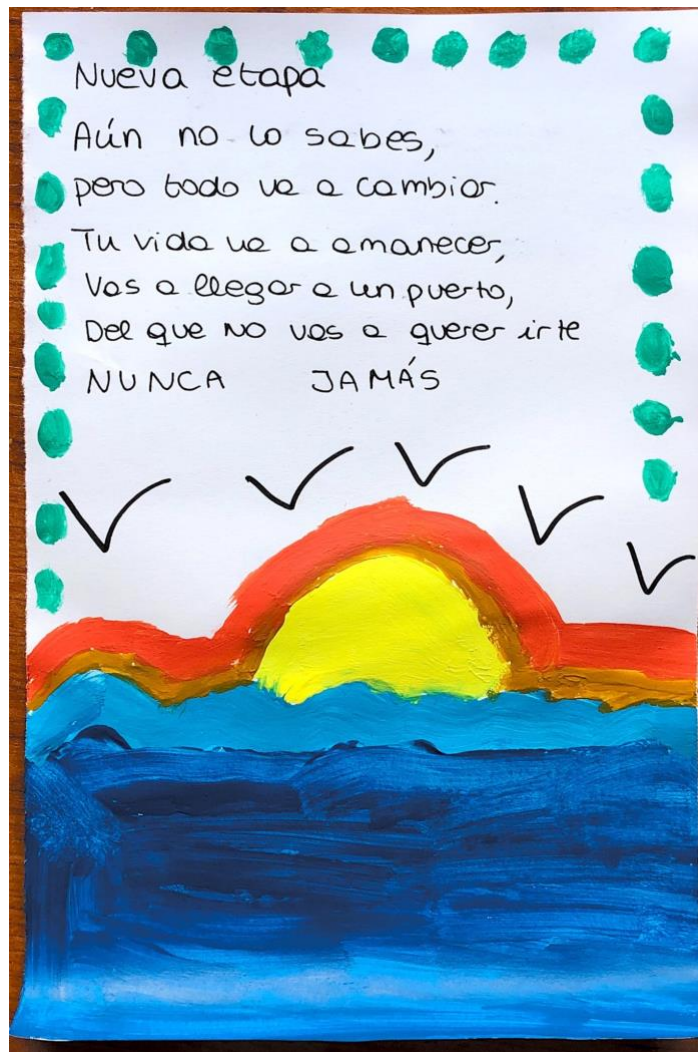 Nueva etapa
Aún no lo sabes,
pero todo va a cambiar.
Tu vida va a amanecer,
Vas a llegar a un puerto,
Del que no vas a querer irte
NUNCA JAMÁS